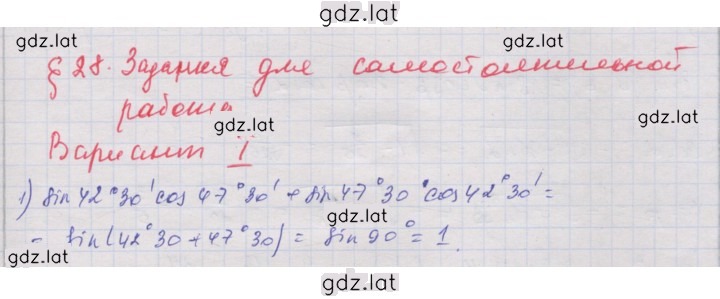 gdz.lat
gdz.lat gdz.lat
§ 28. Задания для самостоятельной
работы
gdz.lat
Вариант I
gdz.lat
1) sin 42°30' cos 47°30' + sin 47°30' cos 42°30' =
gdz.lat
= sin(42°30 + 47°30) = sin 90° = 1.
gdz.lat gdz.lat
gdz.lat